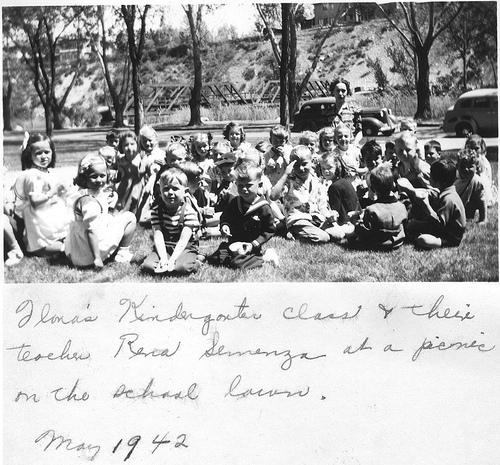 Ilona's Kindergarten class & their
teacher Rena Semenza at a picnic
on the school lawn.
May 1942